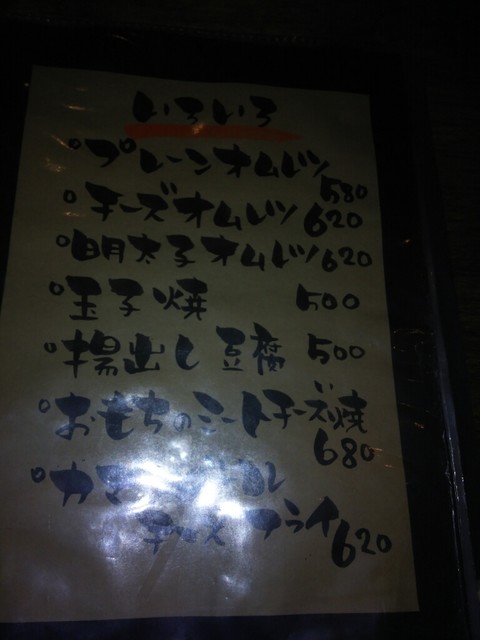 いろいろ
プレーンオムレツ
580
チーズオムレツ 620
明太子オムレツ 620
玉子焼 500
揚出し豆腐 500
おもちのミートチーズ焼
680
チーズフライ 620